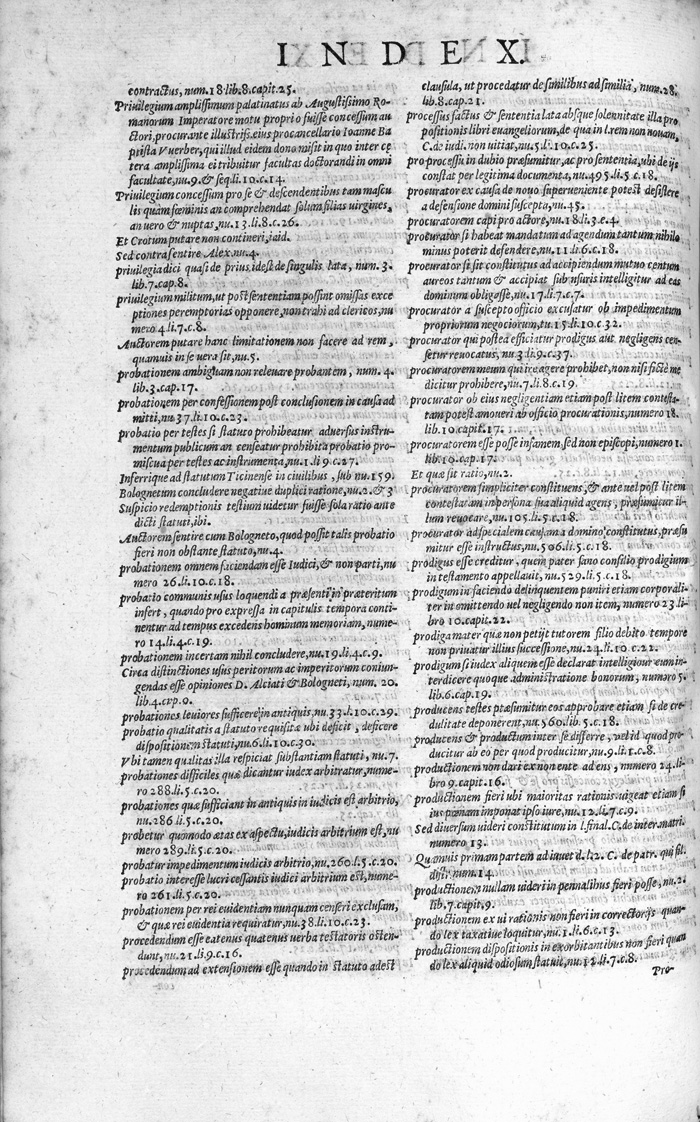 INDEX.
contractus, num.18.lib.8.capit.25.
Priuilegium amplissimum palatinatus ab Augustissimo Ro-
manorum Imperatore motu proprio fuisse concessum au
ctori, procurante illustriss. eius procancellario Ioanne Ba
ptista Vuerber, qui illud eidem dono misit in quo inter ce
tera amplissima ei tribuitur facultas doctorandi in omni
facultate, nu.9.& seq.li.10.c.14.
Priuilegium concessum pro se & descendentibus tam mascu
lis quàm fœminis an comprehendat solùm filias virgines,
an uero & nuptas, nu.13.li.8.c.26.
Et Crotum putare non contineri, iaid.
Sed contra sentire Alex.nu.4.
priuilegia dici quasi de prius, idest de singulis lata, num.3.
lib.7.cap.8.
priuilegium militum, ut post sententiam possint omissas exce
ptiones peremptorias opponere, non trahi ad clericos, nu
mero 4.li.7.c.8.
Auctorem putare hanc limitationem non facere ad rem,
quamuis in se uera sit, nu.5.
probationem ambiguam non releuare probantem, num.4.
lib.3.cap.17.
probationem per confessionem post conclusionem in causa ad
mitti, nu.37.li.10.c.23.
probatio per testes si statuto prohibeatur aduersus instru-
mentum publicum an censeatur prohibita probatio pro-
miscua per testes ac instrumenta, nu.1.li.9.c.27.
Inferrique ad statutum Ticinense in ciuilibus, sub nu.159.
Bolognetum concludere negatiue duplici ratione, nu.2.& 3
Suspicio redemptionis testium uidetur fuisse sola ratio ante
dicti statuti, ibi.
Auctorem sentire cum Bologneto, quod possit talis probatio
fieri non obstante statuto, nu.4.
probationem omnem faciendam esse Iudici, & non parti, nu
mero 26.li.10.c.18.
probatio communis usus loquendi a præsenti in præteritum
infert, quando pro expressa in capitulis tempora conti-
nentur ad tempus excedens hominum memoriam, nume-
ro 14.li.4.c.19.
probationem incertam nihil concludere, nu.19.li.4.c.9.
Circa distinctiones usus peritorum ac imperitorum coniun-
gendas esse opiniones D. Alciati & Bologneti, num. 20.
lib.4.cap.9.
probationes leuiores sufficere in antiquis, nu.33.li.10.c.29.
probatio qualitatis a statuto requisitæ ubi deficit, deficere
dispositionem statuti, nu.6.li.10.c.30.
Vbi tamen qualitas illa respiciat substantiam statuti, nu.7.
probationes difficiles quæ dicantur iudex arbitratur, nume-
ro 288.li.5.c.20.
probationes quæ sufficiant in antiquis in iudicis est arbitrio,
nu.286.li.5.c.20.
probetur quomodo ætas ex aspectu, iudicis arbitrium est, nu
mero 289.li.5.c.20.
probatur impedimentum iudicis arbitrio, nu.260.li.5.c.20.
probatio interesse lucri cessantis iudici arbitrium est, nume-
ro 261.li.5.c.20.
probationem per rei euidentiam nunquam censeri exclusam,
& quæ rei euidentia requiratur, nu.38.li.10.c.23.
procedendum esse eatenus quatenus uerba testatoris osten-
dunt, nu.21.li.9.c.16.
procedendum ad extensionem esse quando in statuto adest
clausula, ut procedatur de similibus ad similia, num.28.
lib.8.cap.21.
processus factus & sententia lata absque solennitate illa pro
positionis libri euangeliorum, de qua in l.rem non nouam,
C.de iudi.non uitiat, nu.5.li.10.c.25.
pro processu in dubio præsumitur, ac pro sententia, ubi de ijs
constat per legitima documenta, nu.495.li.5.c.18.
procurator ex causa de nouo superueniente potest desistere
a defensione domini suscepta, nu.45.
procuratorem capi pro actore, nu.18.li.3.c.4.
procurator si habeat mandatum ad agendum tantum nihilo
minus poterit defendere, nu.11.li.6.c.18.
procurator si sit constitutus ad accipiendum mutuo centum
aureos tantum & accipiat sub usuris intelligitur ad eas
dominum obligasse, nu.17.li.7.c.7.
procurator a suscepto officio excusatur ob impedimentum
propriorum negociorum, tu.15.li.10.c.32.
procurator qui postea efficiatur prodigus aut negligens cen-
setur reuocatus, nu.3.li.9.c.37.
procuratorem meum qui re agere prohibet, non nisi ficte me
dicitur prohibere, nu.7.li.8.c.19.
procurator ob eius negligentiam etiam post litem contesta-
tam potest amoueri ab officio procurationis, numero 18.
lib.10.capit.17.
procuratorem esse posse infamem, sed non episcopi, numero 1.
lib.10.cap.17.
Et quæ sit ratio, nu.2.
procuratorem simpliciter constituens, & ante uel post litem
contestatam in persona sua aliquid agens, præsumitur il-
lum reuocare, nu.105.li.5.c.18.
procurator ad specialem causam a domino constitutus, præsu
mitur esse instructus, nu.506.li.5.c.18.
prodigus esse creditur, quem pater sano consilio prodigium
in testamento appellauit, nu.529.li.5.c.18.
prodigum in faciendo delinquentem puniri etiam corporali-
ter in omittendo uel negligendo non item, numero 23.li-
bro 10.capit.22.
prodiga mater quæ non petijt tutorem filio debito tempore
non priuatur illius successione, nu.24.li.10.c.22.
prodigum si iudex aliquem esse declarat intelligitur eum in-
terdicere quoque administratione bonorum, numero 5.
lib.6.cap.19.
producens testes præsumitur eos approbare etiam si de cre-
dulitate deponerent, nu.560.lib.5.c.18.
producens & productum inter se differre, uel id quod pro-
ducitur ab eo per quod producitur, nu.9.li.1.c.8.
productionem non dari ex non ente ad ens, numero 24.li-
bro 9.capit.16.
productionem fieri ubi maioritas rationis uigeat etiam si
ius pœnam imponat ipso iure, nu.12.li.7.c.9.
Sed diuersum uideri constitutum in l.final.C.de inter.matri.
numero 13.
Quamuis primam partem adiuuet d.l.2. C. de patr. qui fil.
dist. num.14.
productionem nullam uideri in pœnalibus fieri posse, nu.2.
lib.7.capit.9.
productionem ex ui rationis non fieri in correctorijs quan-
do lex taxatiue loquitur, nu.1.li.6.c.13.
productionem dispositionis in exorbitantibus non fieri quan
do lex aliquid odiosum statuit, nu.12.li.7.c.8.
Pro-